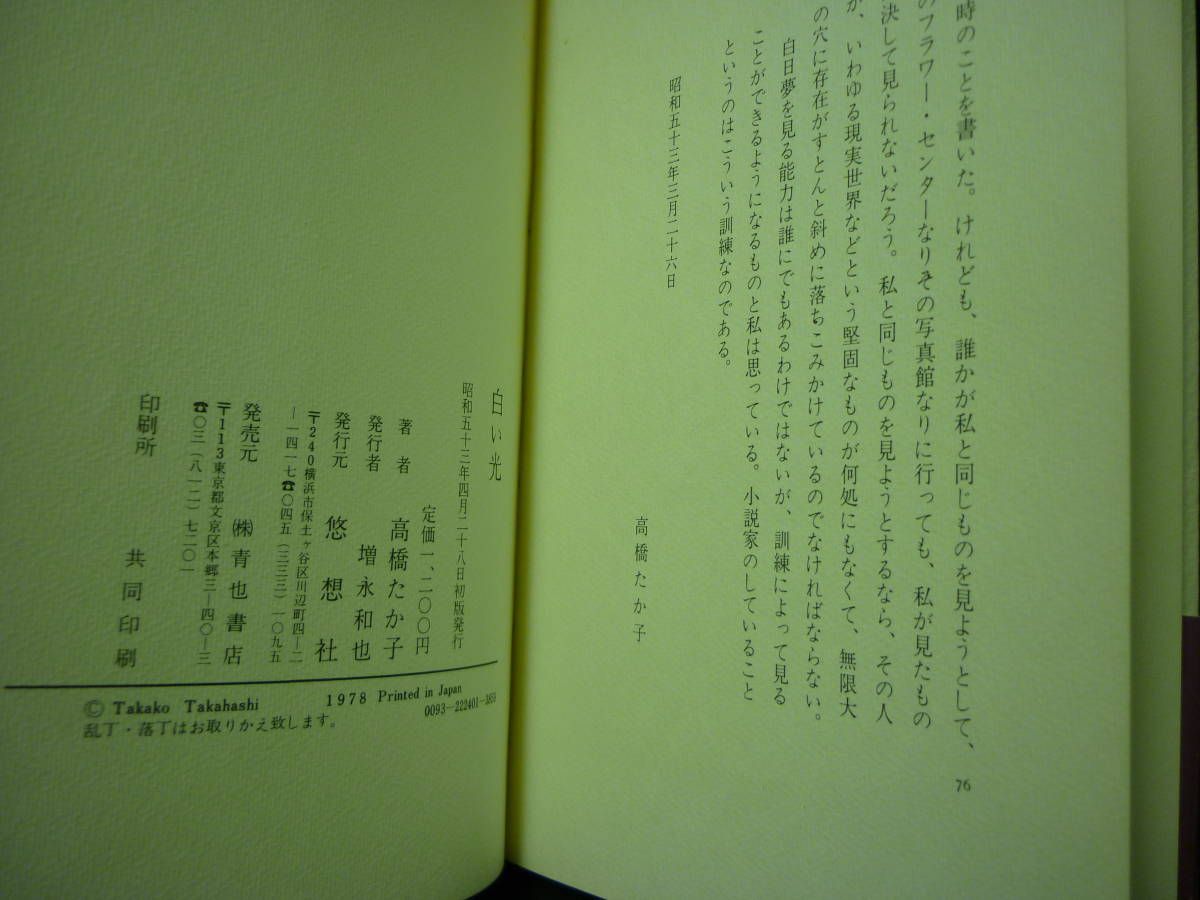 時のことを書いた。けれども、誰かが私と同じものを見ようとして、
のフラワー・センターなりその写真館なりに行っても、私が見たもの
決して見られないだろう。私と同じものを見ようとするなら、その人
が、いわゆる現実世界などという堅固なものが何処にもなくて、無限大
の穴に存在がすとんと斜めに落ちこみかけているのでなければならない。
白日夢を見る能力は誰にでもあるわけではないが、訓練によって見る
ことができるようになるものと私は思っている。小説家のしていること
というのはこういう訓練なのである。
昭和五十三年三月二十六日
高橋たか子
76
白い光
昭和五十三年四月二十八日初版発行
定価一、二〇〇円
著者 高橋たか子
発行者 増永和也
発行元 悠想社
〒240横浜市保土ヶ谷区川辺町四—二
—一四一七☎〇四五(三三三)一〇九五
発売元 ㈱青也書店
〒113東京都文京区本郷三—四〇—三
☎〇三(八一二)七二〇一
印刷所 共同印刷
© Takako Takahashi 1978 Printed in Japan
乱丁・落丁はお取りかえ致します。
0093-222401-3859